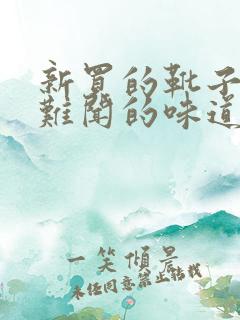 新買的靴子
難聞的味道
一笑傾景
未经同意禁止转载